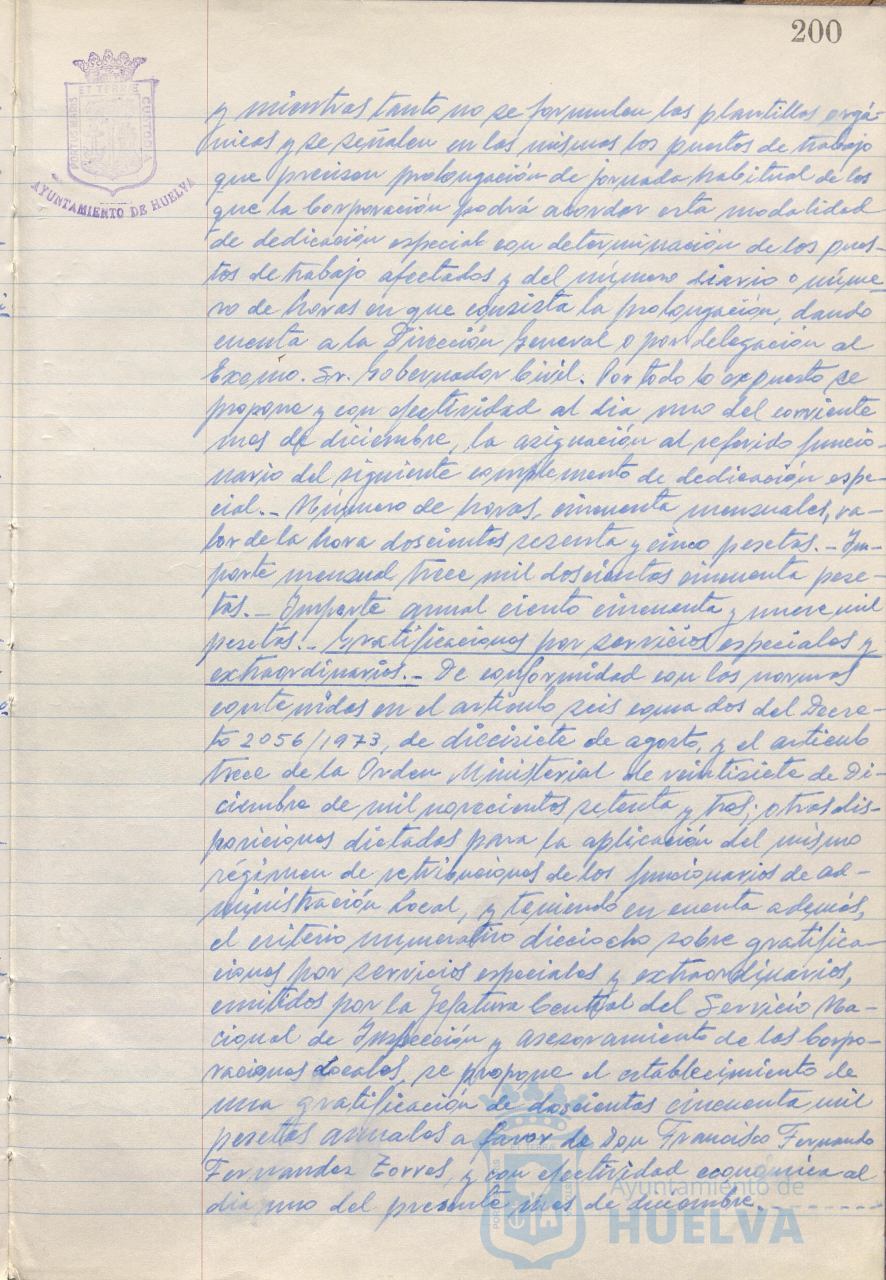 200
PORTUS MARIS ET TERRE CUSTODIA
AYUNTAMIENTO DE HUELVA
y mientras tanto no se formulen las plantillas orgá-
nicas y se señalen en las mismas los puestos de trabajo
que precisen prolongación de jornada habitual de los
que la Corporación podrá acordar esta modalidad
de dedicación especial con determinación de los pues-
tos de trabajo afectados y del número diario o núme-
ro de horas en que consista la prolongación, dando
cuenta a la Dirección General o por delegación al
Excmo. Sr. Gobernador Civil. Por todo lo expuesto se
propone y con efectividad al dia uno del corriente
mes de diciembre, la asignación al referido funcio-
nario del siguiente complemento de dedicación espe-
cial.- Número de horas, cincuenta mensuales, va-
lor de la hora doscientos sesenta y cinco pesetas.- Im-
porte mensual trece mil doscientas cincuenta pese-
tas.- Importe anual ciento cincuenta y nueve mil
pesetas.- Gratificaciones por servicios especiales y
extraordinarios.- De conformidad con las normas
contenidas en el artículo seis coma dos del Decre-
to 2056/1973, de diecisiete de agosto, y el articulo
trece de la Orden Ministerial de veintisiete de Di-
ciembre de mil novecientos setenta y tres; otras dis-
posiciones dictadas para la aplicación del mismo
régimen de retribuciones de los funcionarios de ad-
ministración Local, y teniendo en cuenta además,
el criterio numerativo dieciocho sobre gratifica-
ciones por servicios especiales y extraordinarios,
emitidos por la Jefatura Central del Servicio Na-
cional de Inspección y asesoramiento de las Corpo-
raciones Locales, se propone el establecimiento de
una gratificación de doscientas cincuenta mil
pesetas anuales a favor de Don Francisco Fernando
Fernandez Torres, y con efectividad económica al
dia uno del presente mes de diciembre.
Ayuntamiento de
HUELVA